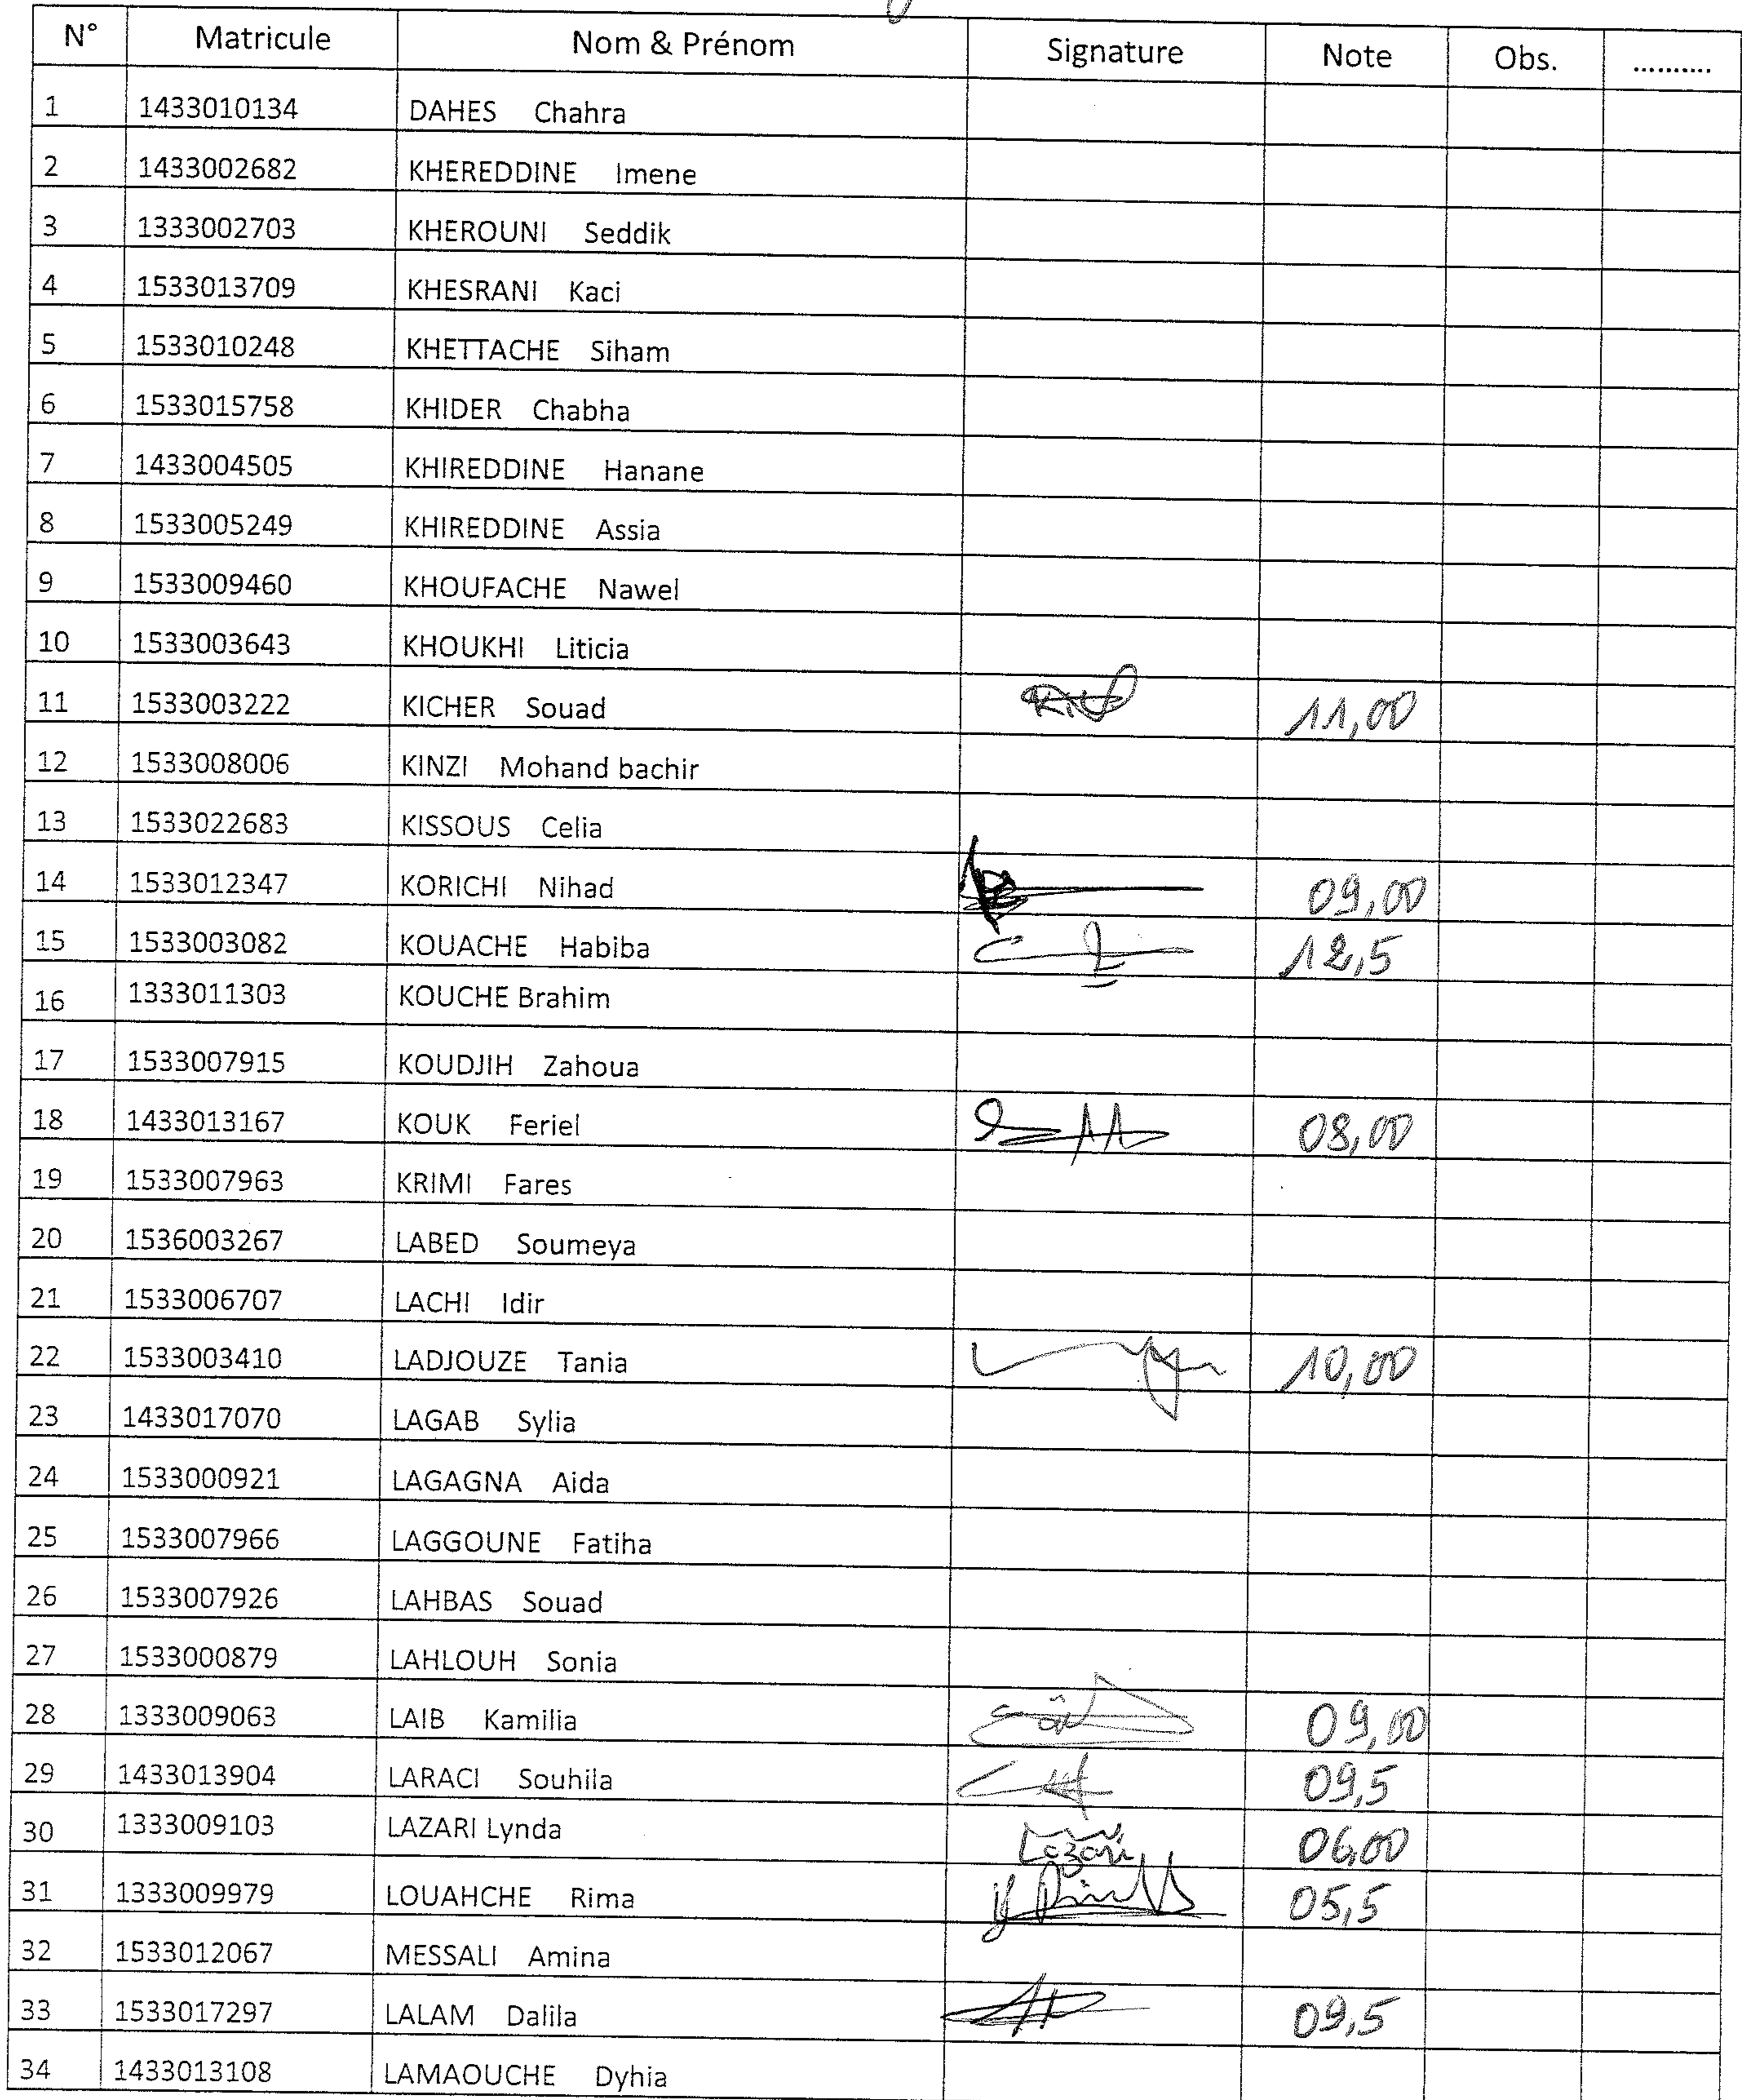 N° Matricule Nom & Prénom Signature Note Obs. ..........
1 1433010134 DAHES Chahra
2 1433002682 KHEREDDINE Imene
3 1333002703 KHEROUNI Seddik
4 1533013709 KHESRANI Kaci
5 1533010248 KHETTACHE Siham
6 1533015758 KHIDER Chabha
7 1433004505 KHIREDDINE Hanane
8 1533005249 KHIREDDINE Assia
9 1533009460 KHOUFACHE Nawel
10 1533003643 KHOUKHI Liticia
11 1533003222 KICHER Souad 11,00
12 1533008006 KINZI Mohand bachir
13 1533022683 KISSOUS Celia
14 1533012347 KORICHI Nihad 09,00
15 1533003082 KOUACHE Habiba 12,5
16 1333011303 KOUCHE Brahim
17 1533007915 KOUDJIH Zahoua
18 1433013167 KOUK Feriel 08,00
19 1533007963 KRIMI Fares
20 1536003267 LABED Soumeya
21 1533006707 LACHI Idir
22 1533003410 LADJOUZE Tania 10,00
23 1433017070 LAGAB Sylia
24 1533000921 LAGAGNA Aida
25 1533007966 LAGGOUNE Fatiha
26 1533007926 LAHBAS Souad
27 1533000879 LAHLOUH Sonia
28 1333009063 LAIB Kamilia 09,00
29 1433013904 LARACI Souhila 09,5
30 1333009103 LAZARI Lynda Lazari 06,00
31 1333009979 LOUAHCHE Rima 05,5
32 1533012067 MESSALI Amina
33 1533017297 LALAM Dalila 09,5
34 1433013108 LAMAOUCHE Dyhia